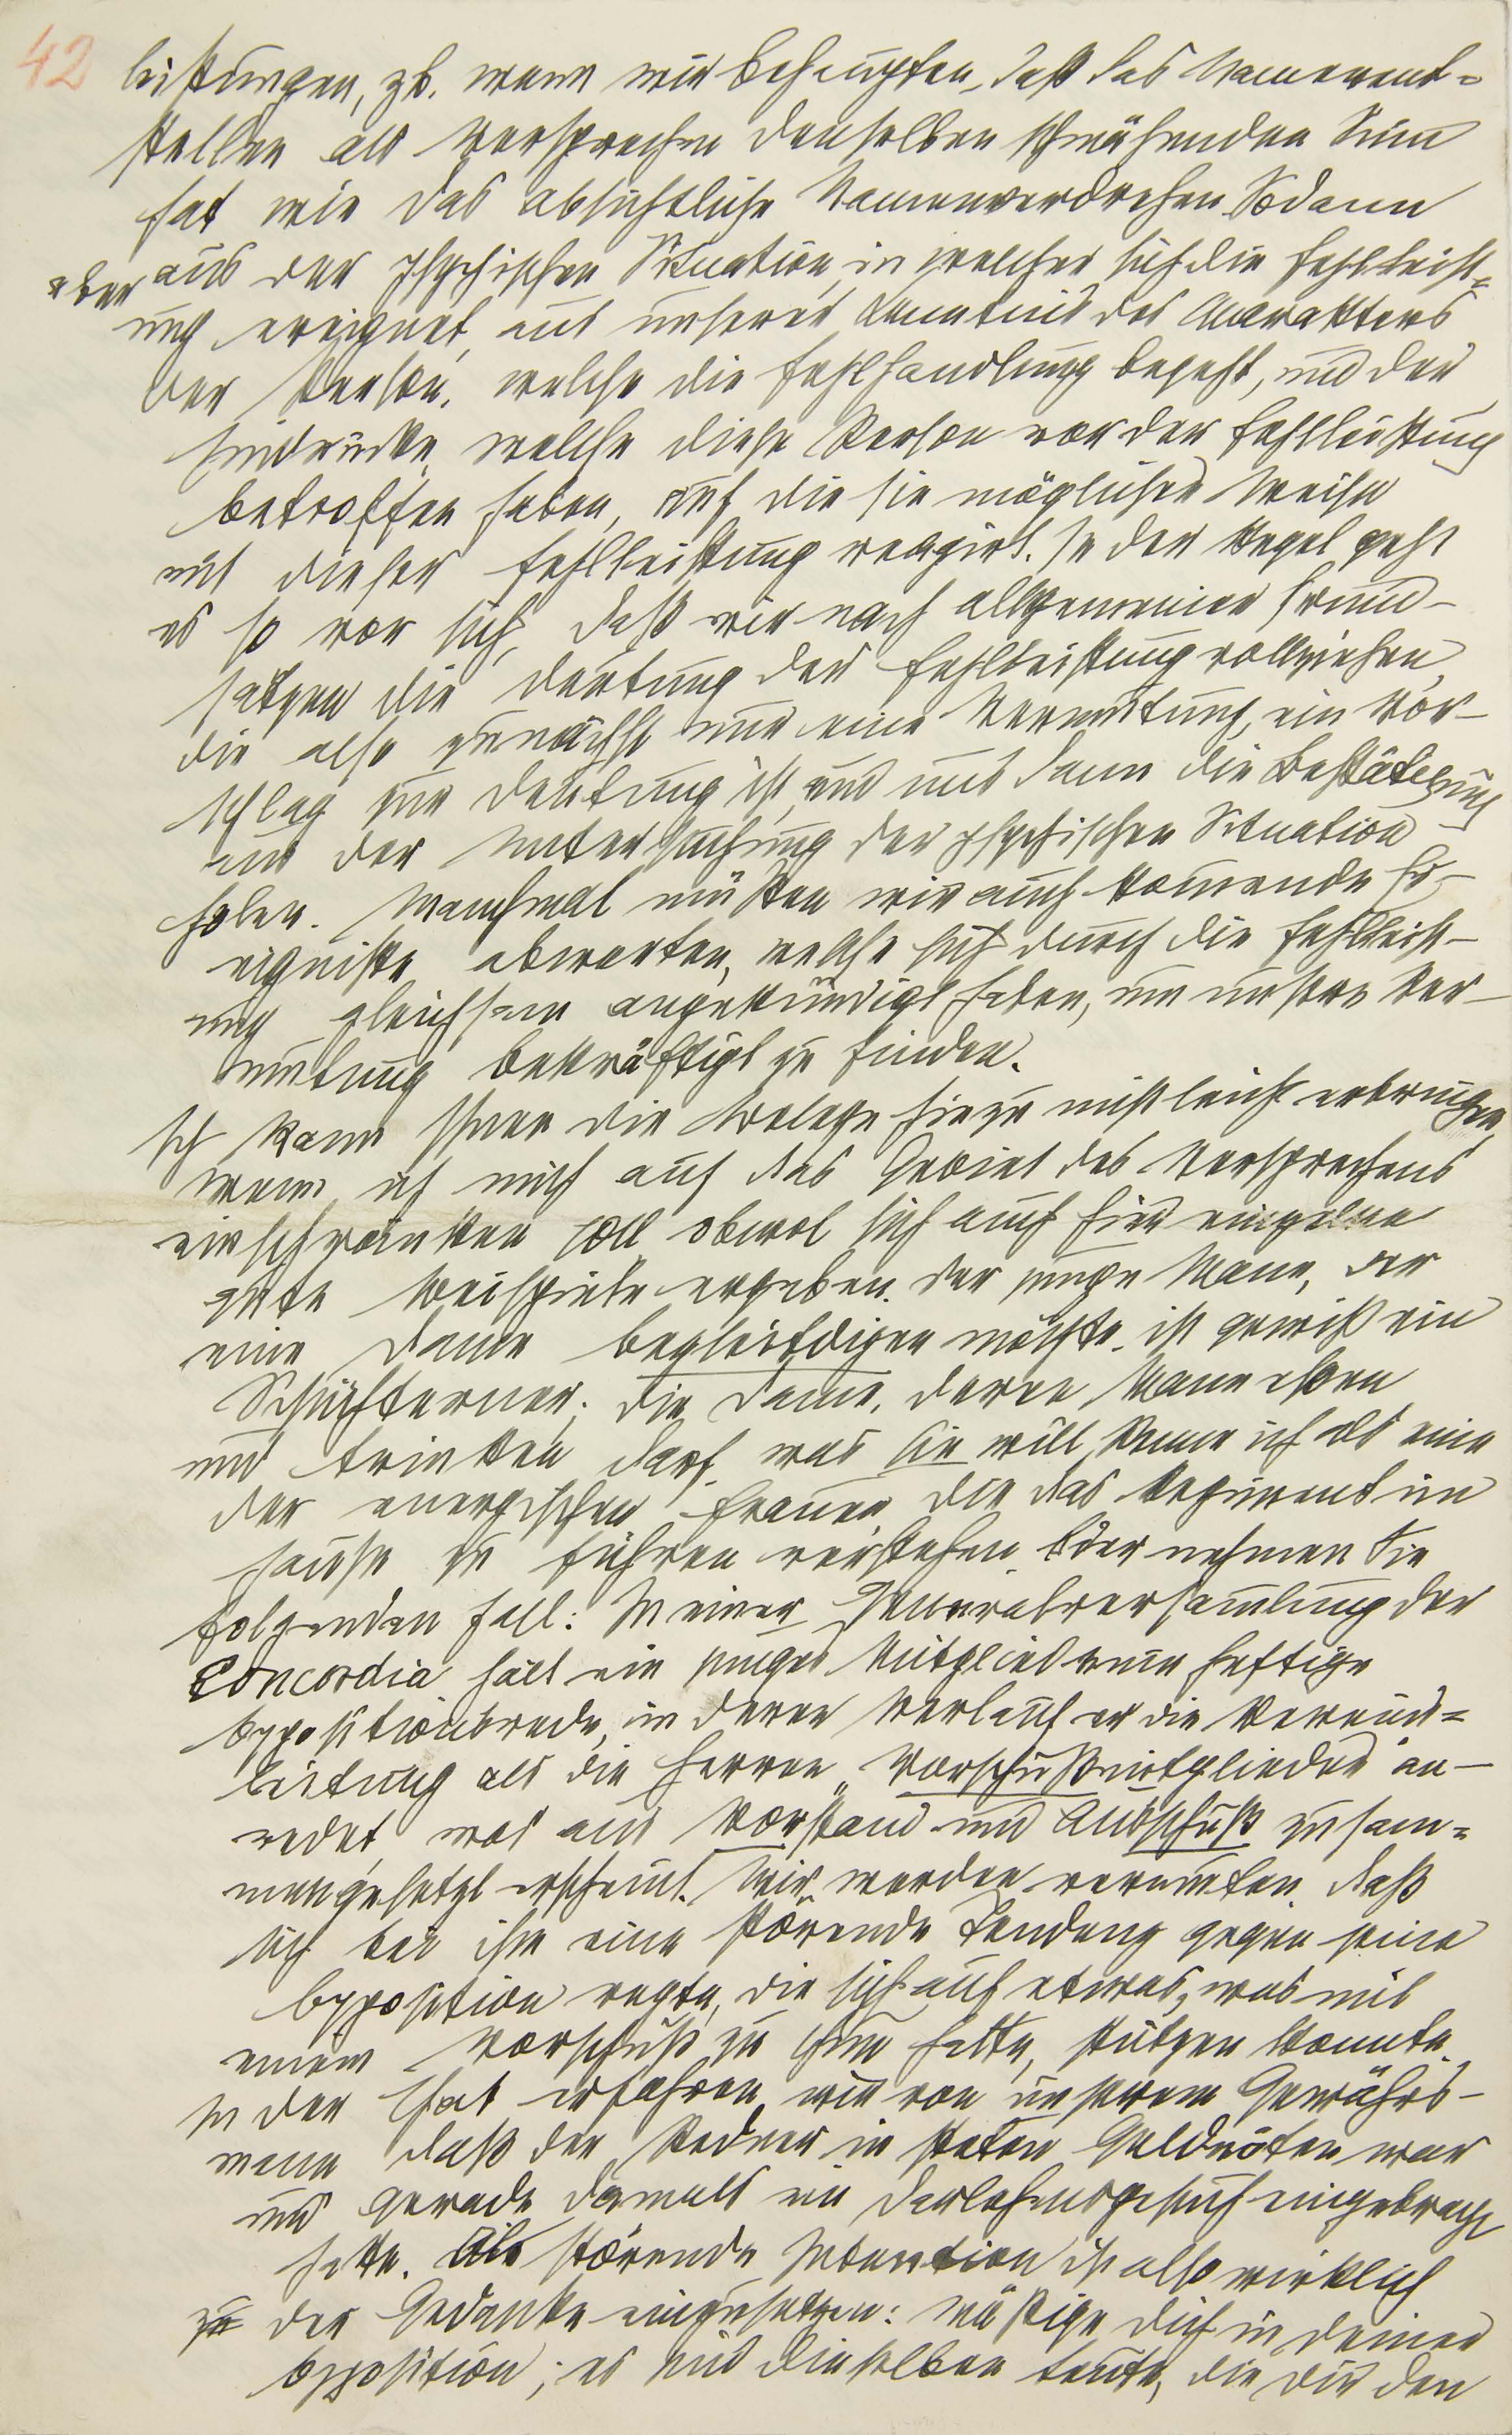 42
leistungen, zb. wenn wir behaupten, daß das Namenent=
stellen als Versprechen denselben schmähenden Sinn
hat wie das absichtliche Namenverdrehen. Sodann
aber aus der psychischen Situation, in welcher sich die Fehlleist=
ung ereignet, aus unserer Kenntnis des Charakters
der Person, welche die Fehlhandlung begeht, und der
Eindrücke, welche diese Person vor der Fehlleistung
betroffen haben, auf die sie möglicher Weise
mit dieser Fehlleistung reagirt. In der Regel geht
es so vor sich, daß wir nach allgemeinen Grund-
sätzen die Deutung der Fehlleistung vollziehen,
die also zunächst nur eine Vermutung, ein Vor-
schlag zur Deutung ist, und uns dann die Bestätigung
aus der Untersuchung der psychischen Situation
holen. Manchmal müssen wir auch kommende Er-
eignisse abwarten, welche sich durch die Fehlleist-
ung gleichsam angekündigt haben, um unsere Ver-
mutung bekräftigt zu finden.
Ich kann Ihnen die Belege hiezu nicht leicht erbringen,
wenn ich mich auf das Gebiet des Versprechens
einschränken soll obwol sich auch hier einzelne
gute Beispiele ergeben. Der junge Mann, der
eine Dame begleitdigen möchte, ist gewiß ein
Schüchterner; die Dame, deren Mann essen
und trinken darf, was sie will, kenne ich als eine
der energischen Frauen, die das Regiment im
Hause zu führen verstehen. Oder nehmen Sie
folgenden Fall: In einer Generalversammlung der
Concordia hält ein junges Mitglied eine heftige
Oppositionsrede, in deren Verlauf er die Vereins=
leitung als die Herren „Vorschußmitglieder" an-
redet, was aus Vorstand und Ausschuß zusam=
mengesetzt erscheint. Wir werden vermuten, daß
sich bei ihm eine störende Tendenz gegen seine
Opposition regte, die sich auf etwas, was mit
einem Vorschuß zu thun hatte, stützen konnte.
In der That erfahren wir von unserem Gewährs-
mann, daß der Redner in steten Geldnöten war
und gerade damals ein Darlehensgesuch eingebracht
hatte. Als störende Intention ist also wirklich
zu der Gedanke einzusetzen: mäßige dich in deiner
Opposition; es sind dieselben Leute, die dir den